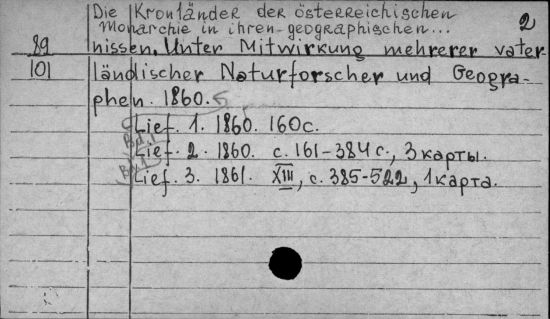 Die Kronländer der österreichischen
Monarchie in ihren geographischen... 2
89 nissen. Unter Mitwirkung mehrerer vater-
101 ländlischer Naturforscher und Geogra-
phen. 1860.
Lief. 1. 1860. 160 с.
Bd. 1
Lief. 2. 1860. с. 161-384 с., 3 карты.
Bd. 1
Lief. 3. 1861. XIII, с. 385-522, 1 карта.